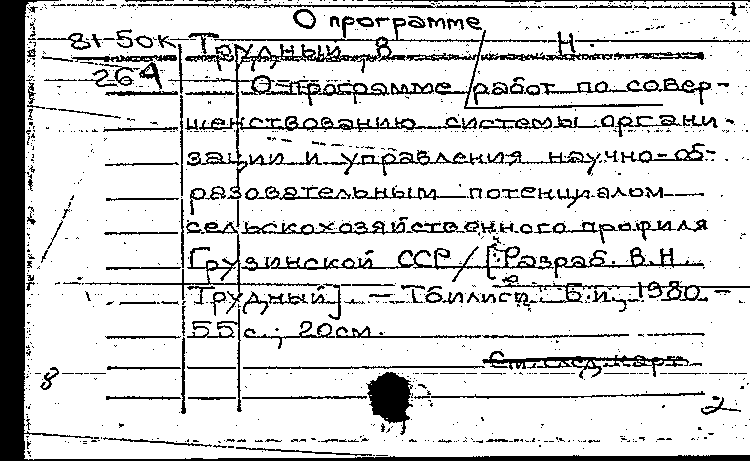 1
О программе
81-50к Трудный В Н.
264 О программе работ по совер-
шенствованию системы органи-
зации и управления научно-об-
разовательным потенциалом
сельскохозяйственного профиля
Грузинской ССР / [Разраб. В.Н.
Трудный]. — Тбилиси: Б.и., 1980. —
55 с.; 20 см.
См. след. карт
8
2